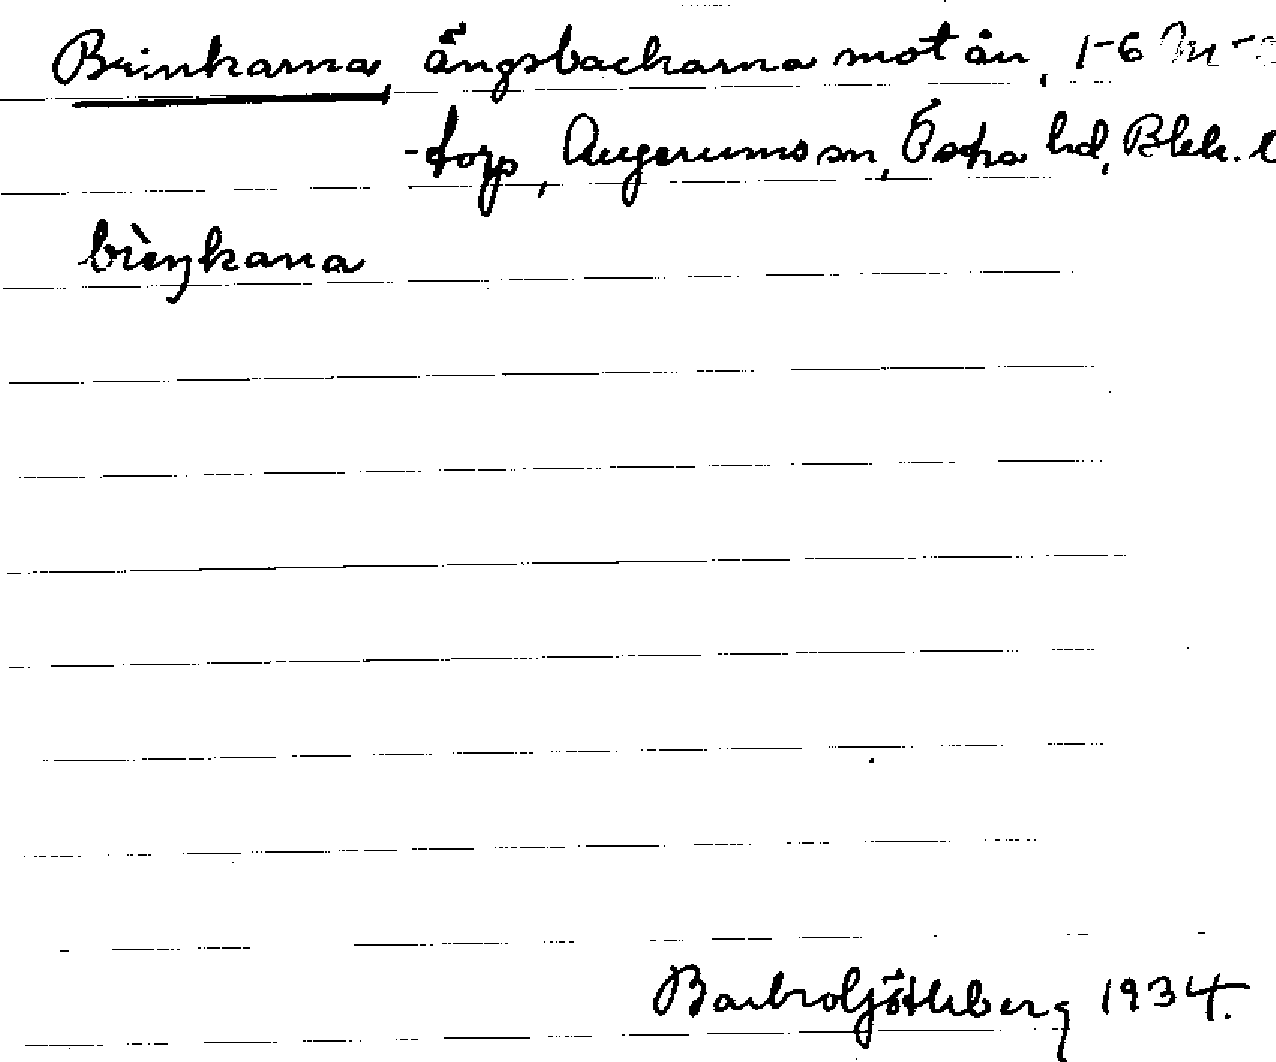 Brinkarna, ängsbackarna mot ån, 1-6
-torp, Augerums sn, Östra hd, Blek. l
brìŋkana
Barbro Götlberg 1934.